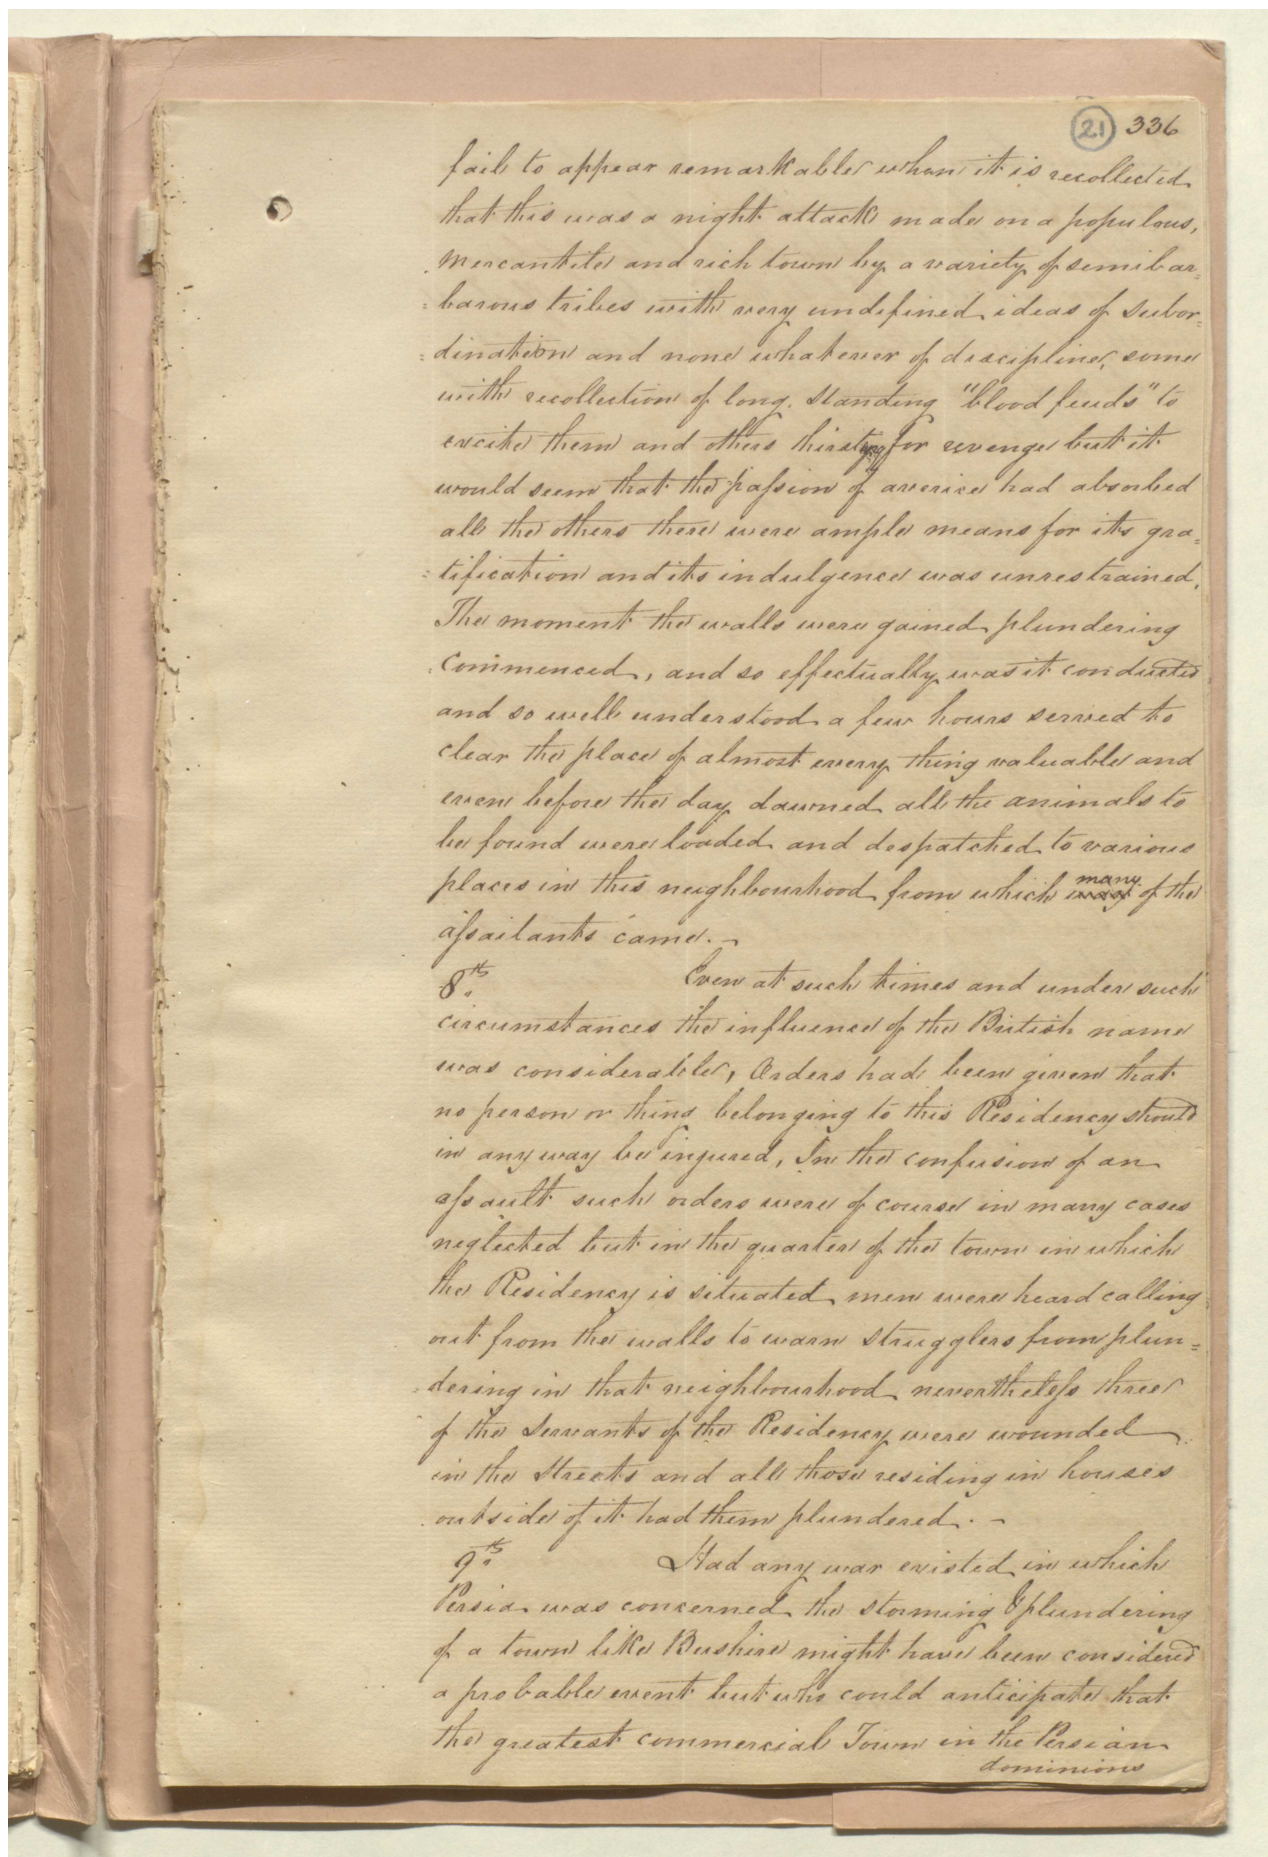 21 336
fail to appear remarkable when it is recollected
that this was a night attack made on a populous,
mercantile and rich town by a variety of semibar=
=barous tribes with very undefined ideas of subor=
=dination and none whatever of discipline, some
with recollection of long standing "blood feuds" to
excite them and others thirsting for revenge but it
would seem that the passion of averice had absorbed
all the others there were ample means for its gra=
=tification and its indulgence was unrestrained.
The moment the walls were gained plundering
commenced, and so effectually was it conducted
and so well understood a few hours served to
clear the place of almost every thing valuable and
even before the day dawned all the animals to
be found were loaded and despatched to various
places in this neighbourhood from which many of the
assailants came. –
8th. Even at such times and under such
circumstances the influence of the British name
was considerable, Orders had been given that
no person or thing belonging to this Residency should
in any way be injured, In the confusion of an
assault such orders were of course in many cases
neglected but in the quarter of the town in which
the Residency is situated men were heard calling
out from the walls to warn strugglers from plun=
=dering in that neighbourhood nevertheless three
of the Servants of the Residency were wounded
in the Streets and all those residing in houses
outside of it had them plundered. –
9th. Had any war existed in which
Persia was concerned the storming & plundering
of a town like Bushire might have been considered
a probable event but who could anticipate that
the greatest commercial Town in the Persian
dominions